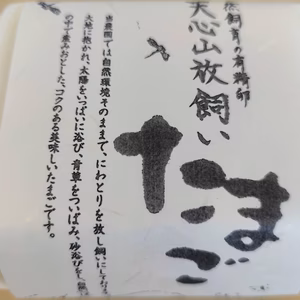 然飼育の有精卵
天心山放飼い
たまご
当農園では自然環境そのままで、にわとりを放し飼いにしており
大地に抱かれ、太陽をいっぱいに浴び、青草をついばみ、砂浴びをし、自然
の中で産みおとした、コクのある美味しいたまごです。